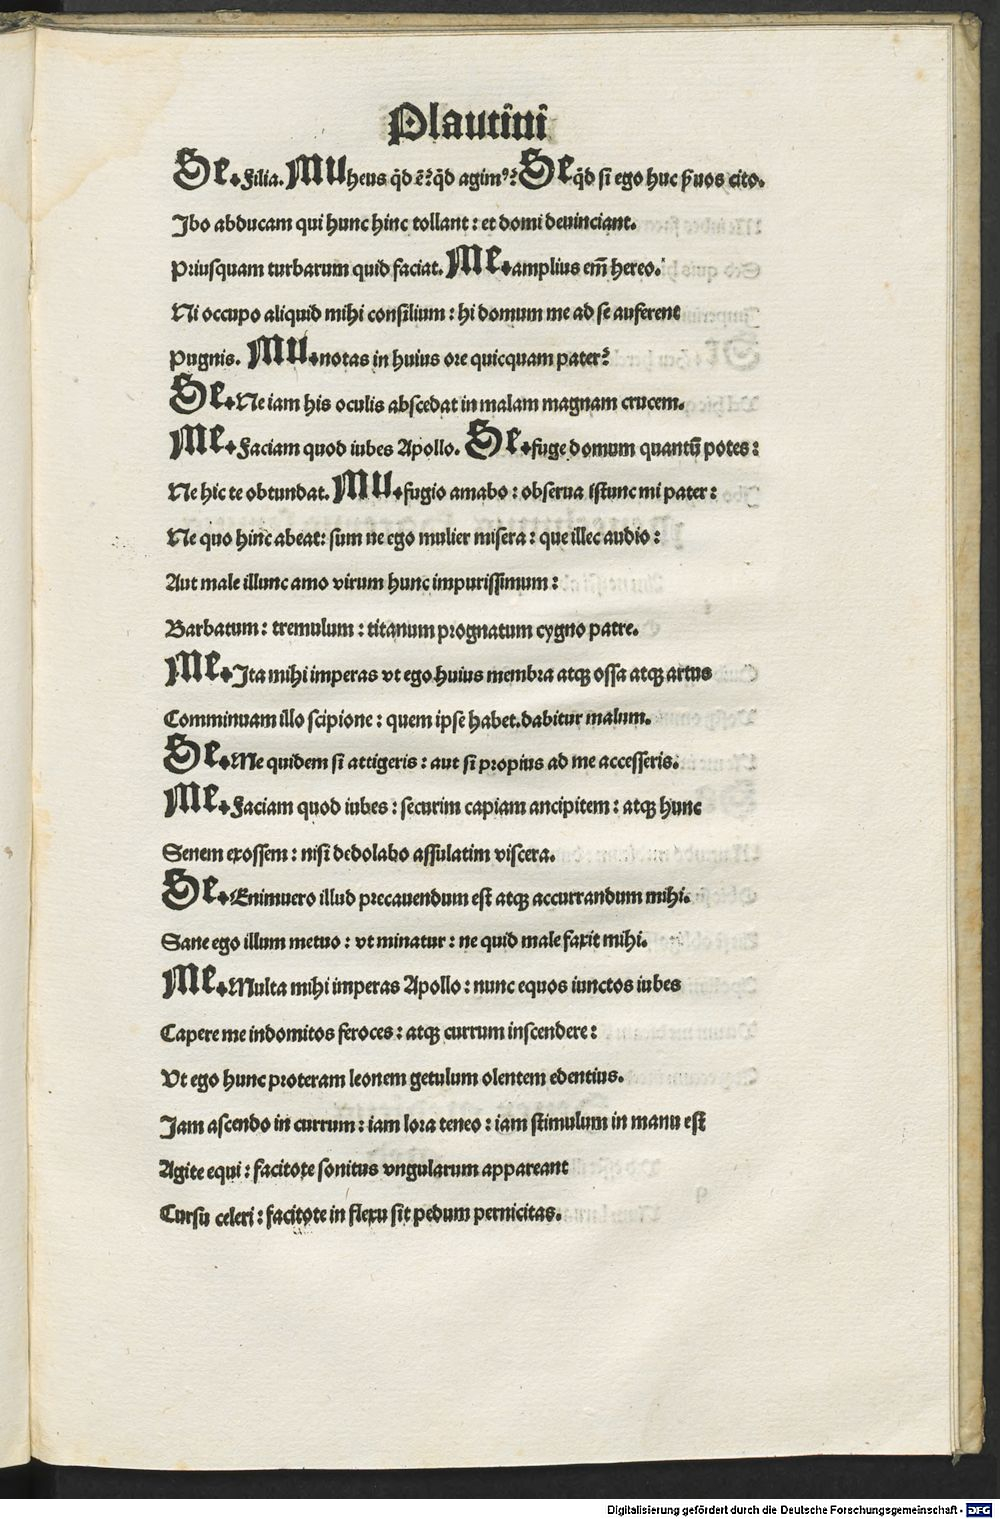 Plautini
Se. Filia. Mu heus q̄d ē? q̄d agimꝰ? Se q̄d si ego huc ṗuos cito.
Ibo abducam qui hunc hinc tollant: et domi deuinciant.
Priusquam turbarum quid faciat. Me. amplius em̄ hereo.
Ni occupo aliquid mihi consilium: hi domum me ad se auferent
Pugnis. Mu. notas in huius ore quicquam pater?
Se. Ne iam his oculis abscedat in malam magnam crucem.
Me. Faciam quod iubes Apollo. Se. fuge domum quantū potes:
Ne hic te obtundat. Mu. fugio amabo: obserua istunc mi pater:
Ne quo hinc abeat: sum ne ego mulier misera: que illec audio:
Aut male illunc amo virum hunc impurissimum:
Barbatum: tremulum: titanum prognatum cygno patre.
Me. Ita mihi imperas vt ego huius membra atqꝫ ossa atqꝫ artus
Comminuam illo scipione: quem ipse habet. dabitur malum.
Se. Me quidem si attigeris: aut si propius ad me accesseris:
Me. Faciam quod iubes: securim capiam ancipitem: atqꝫ hunc
Senem exossem: nisi dedolabo assulatim viscera.
Se. Enimuero illud precauendum est atqꝫ accurrandum mihi.
Sane ego illum metuo: vt minatur: ne quid male faxit mihi.
Me. Multa mihi imperas Apollo: nunc equos iunctos iubes
Capere me indomitos feroces: atqꝫ currum inscendere:
Vt ego hunc proteram leonem getulum olentem edentius.
Iam ascendo in currum: iam lora teneo: iam stimulum in manu est
Agite equi: facitote sonitus vngularum appareant
Cursu celeri: facitote in flexu sit pedum pernicitas.
Digitalisierung gefördert durch die Deutsche Forschungsgemeinschaft - DFG